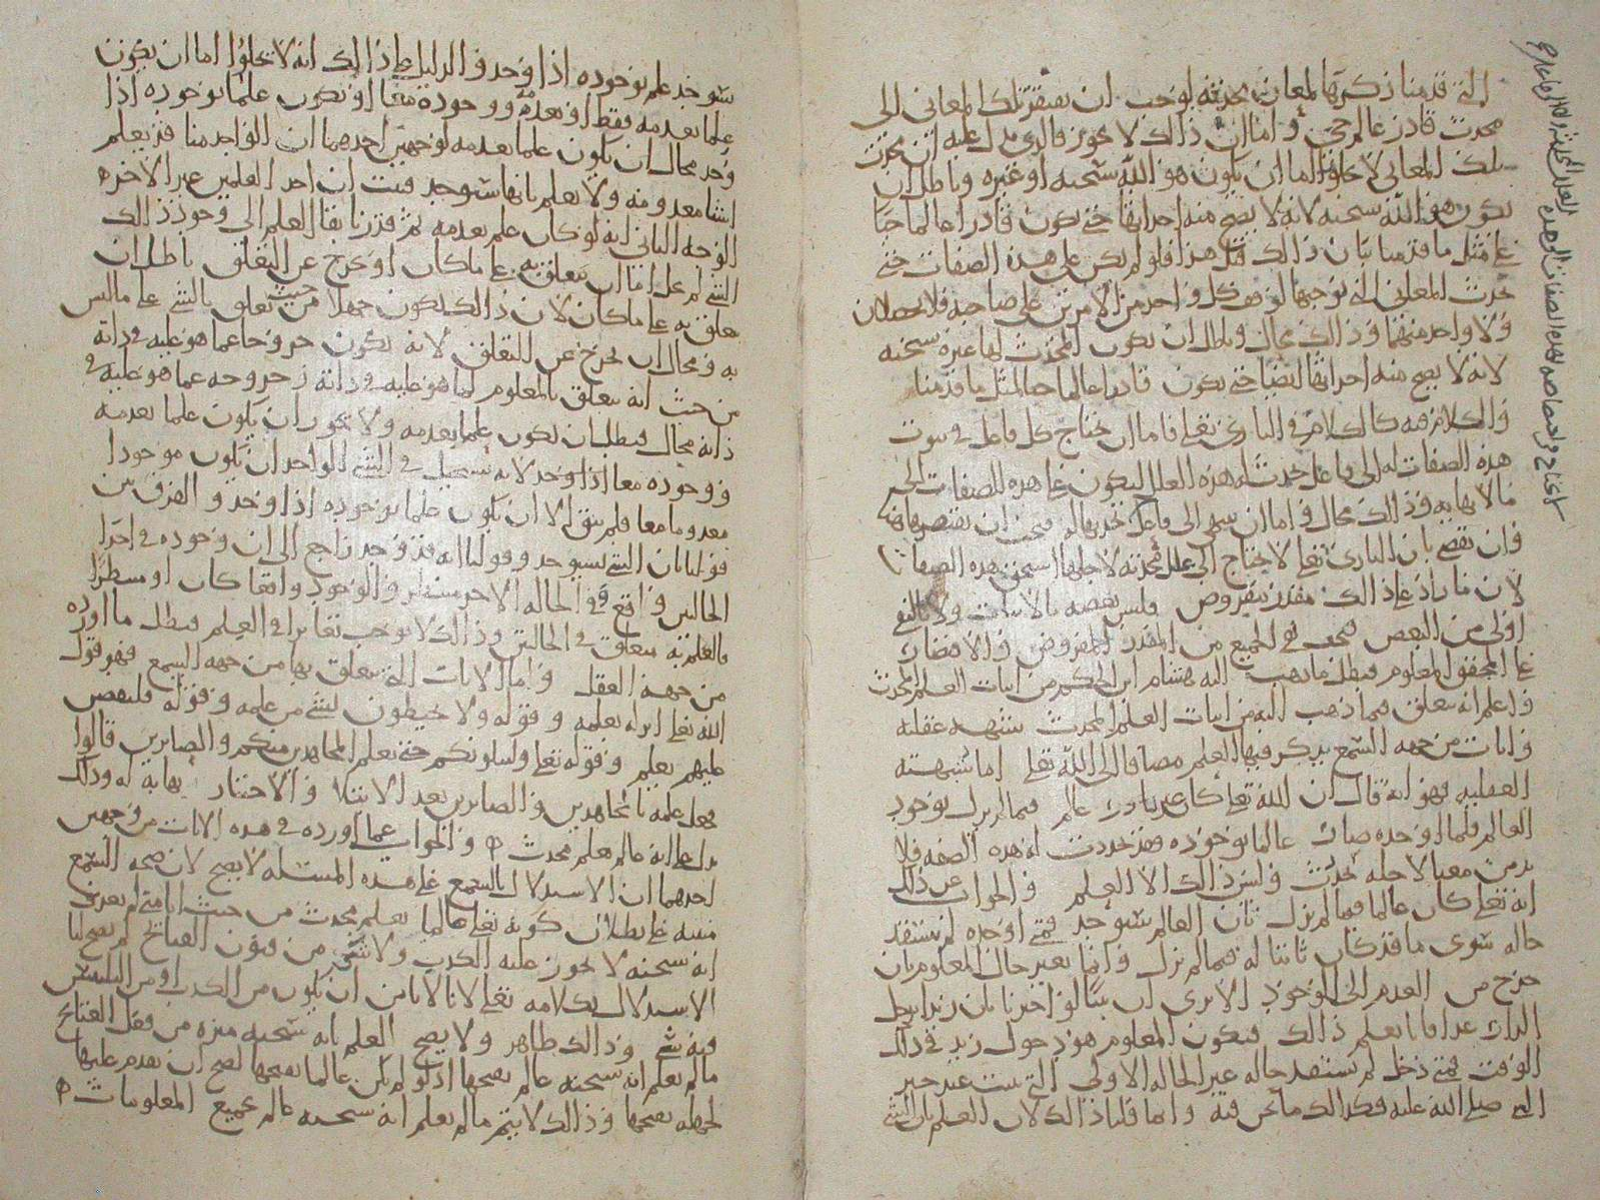 التي قدمنا ذكرها لمعان محدثة لوجب ان تفتقر تلك المعاني الى
محدث قادر عالم حي واما ان ذالك لا يجوز فالذي يدل عليه ان محدث
تلك المعاني لا يخلوا اما ان يكون هو الله سبحنه او غيره وباطل ان
يكون هو الله سبحنه لانه لا يصح منه احداثها حتى يكون قادرا عالما حيا
على مثل ما قدمنا بيان ذالك قبل هذا فلو لم يكن على هذه الصفات حتى
يحدث المعاني التي توجبها لوقف كل واحد من الامرين على صاحبه فلا يحصلان
ولا واحد منهما وذالك محال وباطل ان يكون المحدث لها غيره سبحنه
لانه لا يصح منه احداثها ايضا حتى يكون قادرا عالما حيا لمثل ما قدمنا
والكلام فيه كالكلام في الباري تعالى فاما ان يحتاج كل فاعل في ثبوت
هذه الصفات له الى فاعل يحدث له هذه العلل ليكون على هذه الصفات الى
ما لا نهاية وذالك محال واما ان ينتهي الى فاعل
فان نقضي بان الباري تعالى لا يحتاج الى علل محدثة لاجلها استحق هذه الصفات
لان ما زاد على ذالك مقدر مفروض وليس بعضه بالاثبات ولا بالنفي
اولى من البعض فيجب نفي الجميع من المقدر المفروض والاقتصار
على المحقق المعلوم فبطل ما ذهب اليه هشام ابن الحكم من اثبات العلم المحدث
واعلم انه تعلق فيما ذهب اليه من اثبات العلم المحدث بشبهه عقلية
وايات من جهة السمع يذكر فيها العلم مضافا الى الله تعالى اما شبهته
العقلية فهو انه قال ان الله تعالى كان غير عالم فيما لم يزل بوجود
العالم فلما اوجده صار عالما بوجوده فقد تجددت له هذه الصفة فلا
بد من معنى لاجله تجددت وليس ذالك الا العلم والجواب عن ذلك
انه تعالى كان عالما فيما لم يزل بان العالم سيوجد فمتى اوجده لم يستفد
حالة سوى ما قد كان ثابتا له فيما لم يزل وانما تغير حال المعلوم بان
خرج من العدم الى الوجود الا ترى ان نبيا لو اخبرنا بان زيدا يدخل
الدار غدا فانا نعلم ذالك فيكون المعلوم هو دخول زيد في ذلك
الوقت فمتى دخل لم نستفد حالة غير الحالة الاولى التي ثبتت عند خبر
النبي صلى الله عليه فكذالك ما نحن فيه وانما قلنا ذالك لان العلم بان الشي
سيوجد علم بوجوده اذا وجد والدليل على ذالك انه لا يخلوا اما ان يكون
علما بعدمه فقط او بعدمه ووجوده معا او يكون علما بوجوده اذا
وجد محال ان يكون علما بعدمه لوجهين احدهما ان الواحد منا قد يعلم
اشيا معدومة ولا يعلم بانها ستوجد فثبت ان احد العلمين غير الاخر
الوجه الثاني انه لو كان علم بعدمه ثم قدرنا بقا العلم الى وجود ذالك
الشي لم يخل اما ان يتعلق به على ما كان او يخرج عن التعلق باطل ان
يتعلق به على ما كان لان ذالك يكون جهلا من حيث تعلق بالشي على ما ليس
به ومحال ان يخرج عن التعلق لانه يكون خروجا عما هو عليه في ذاته
من حيث انه يتعلق بالمعلوم لما هو عليه في ذاته وخروجه عما هو عليه في
ذاته محال فبطل ان يكون علما بعدمه ولا يجوز ان يكون علما بعدمه
ووجوده معا اذا وجد لانه يستحيل في الشي الواحد ان يكون موجودا
معدوما معا فلم يبق الا ان يكون علما بوجوده اذا وجد والفرق بين
قولنا بان الشي سيوجد وقولنا انه قد وجد راجع الى ان وجوده في احدى
الحالتين واقع وفي الحالة الاخرى منتظر والوجود واقعا كان او منتظرا
فالعلم به متعلق في الحالتين وذالك لا يوجب تغايرا في العلم فبطل ما اورده
من جهة العقل واما الايات التي تعلق بها من جهة السمع فهو قول
الله تعالى انزله بعلمه وقوله ولا يحيطون بشي من علمه وقوله فلنقصن
عليهم بعلم وقوله تعالى ولنبلونكم حتى نعلم المجاهدين منكم والصابرين قالوا
فجعل علمه بالمجاهدين والصابرين بعد الابتلا والاختبار نهاية له وذلك
يدل على انه عالم بعلم محدث والجواب عما اورده في هذه الايات من وجهين
احدهما ان الاستدلال بالسمع على هذه المسئلة لا يصح لان صحة السمع
مبنية على بطلان كونه تعالى عالما بعلم محدث من حيث انا متى لم نعرف
انه سبحنه لا يجوز عليه الكذب ولا شي من فنون القبائح لم يصح لنا
الاستدلال بكلامه تعالى لانا لا نامن ان يكون من الكذب او من التلبيس
فيه شي وذالك ظاهر ولا يصح العلم بانه سبحنه منزه من فعل القبائح
ما لم نعلم انه سبحنه عالم بقبحها اذ لو لم يكن عالما بقبحها لصح ان يقدم عليها
لجهله بقبحها وذالك لا يتم ما لم نعلم انه سبحنه عالم بجميع المعلومات